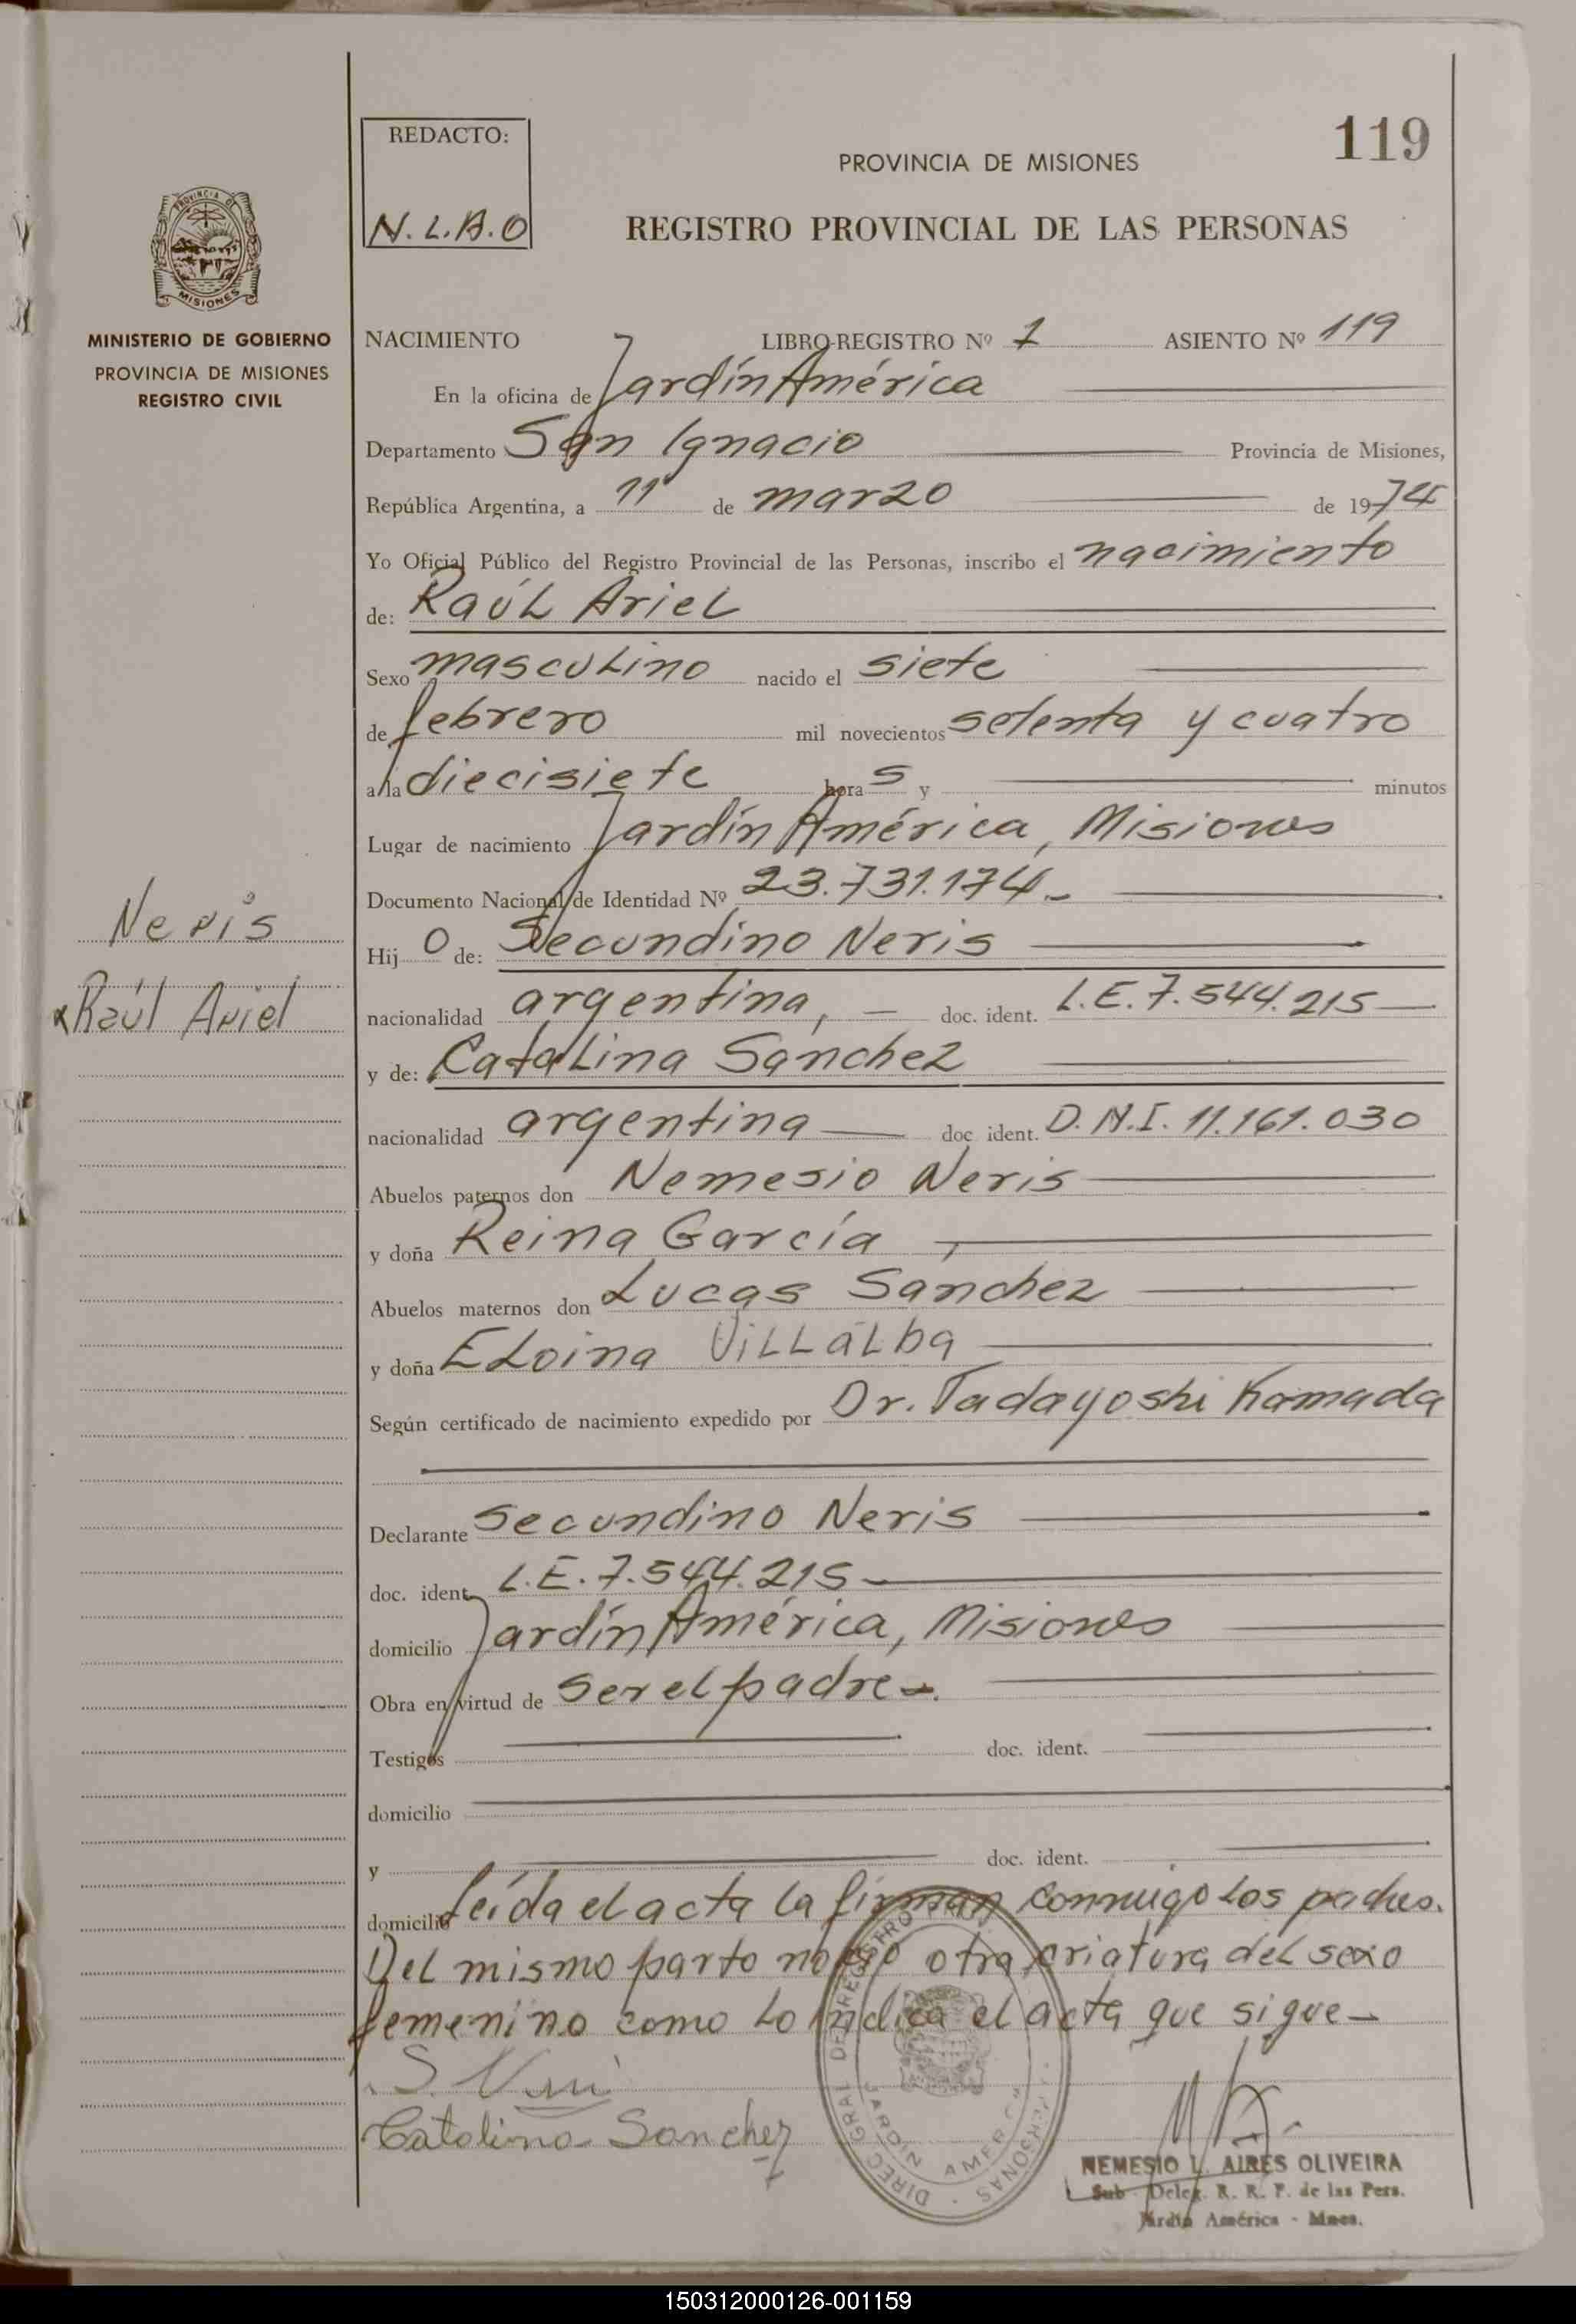 119
REDACTO:
N. L. A. O
PROVINCIA DE MISIONES
REGISTRO PROVINCIAL DE LAS PERSONAS
PROVINCIA DE
MISIONES
MINISTERIO DE GOBIERNO
PROVINCIA DE MISIONES
REGISTRO CIVIL
NACIMIENTO LIBRO-REGISTRO Nº 1 ASIENTO Nº 119
En la oficina de Jardín América
Departamento San Ignacio Provincia de Misiones,
República Argentina, a 11 de marzo de 1974
Yo Oficial Público del Registro Provincial de las Personas, inscribo el nacimiento
de: Raúl Ariel
Sexo masculino nacido el siete
de febrero mil novecientos setenta y cuatro
a la diecisiete hora s y minutos
Lugar de nacimiento Jardín América, Misiones
Documento Nacional de Identidad Nº 23.731.174.-
Neris
Raúl Ariel
Hij o de: Secundino Neris
nacionalidad argentina, - doc. ident. L.E. 7.544.215
y de: Catalina Sánchez
nacionalidad argentina doc. ident. D.N.I. 11.161.030
Abuelos paternos don Nemesio Neris
y doña Reina García,
Abuelos maternos don Lucas Sánchez
y doña Eloina Villalba
Según certificado de nacimiento expedido por Dr. Tadayoshi Kamada
Declarante Secundino Neris
doc. ident. L.E. 7.544.215-
domicilio Jardín América, Misiones
Obra en virtud de ser el padre-.
Testigos doc. ident.
domicilio
y doc. ident.
domicilio Leída el acta la firman conmigo los padres.
Del mismo parto nació otra criatura del sexo
femenino como lo indica el acta que sigue-
S. Neris
Catalina Sanchez
DIREC GRAL DEL REGISTRO PERSONAS
JARDIN AMERICA
NEMESIO L. AIRES OLIVEIRA
Sub-Deleg. R. R. P. de las Pers.
Jardín América - Mnes.
150312000126-001159